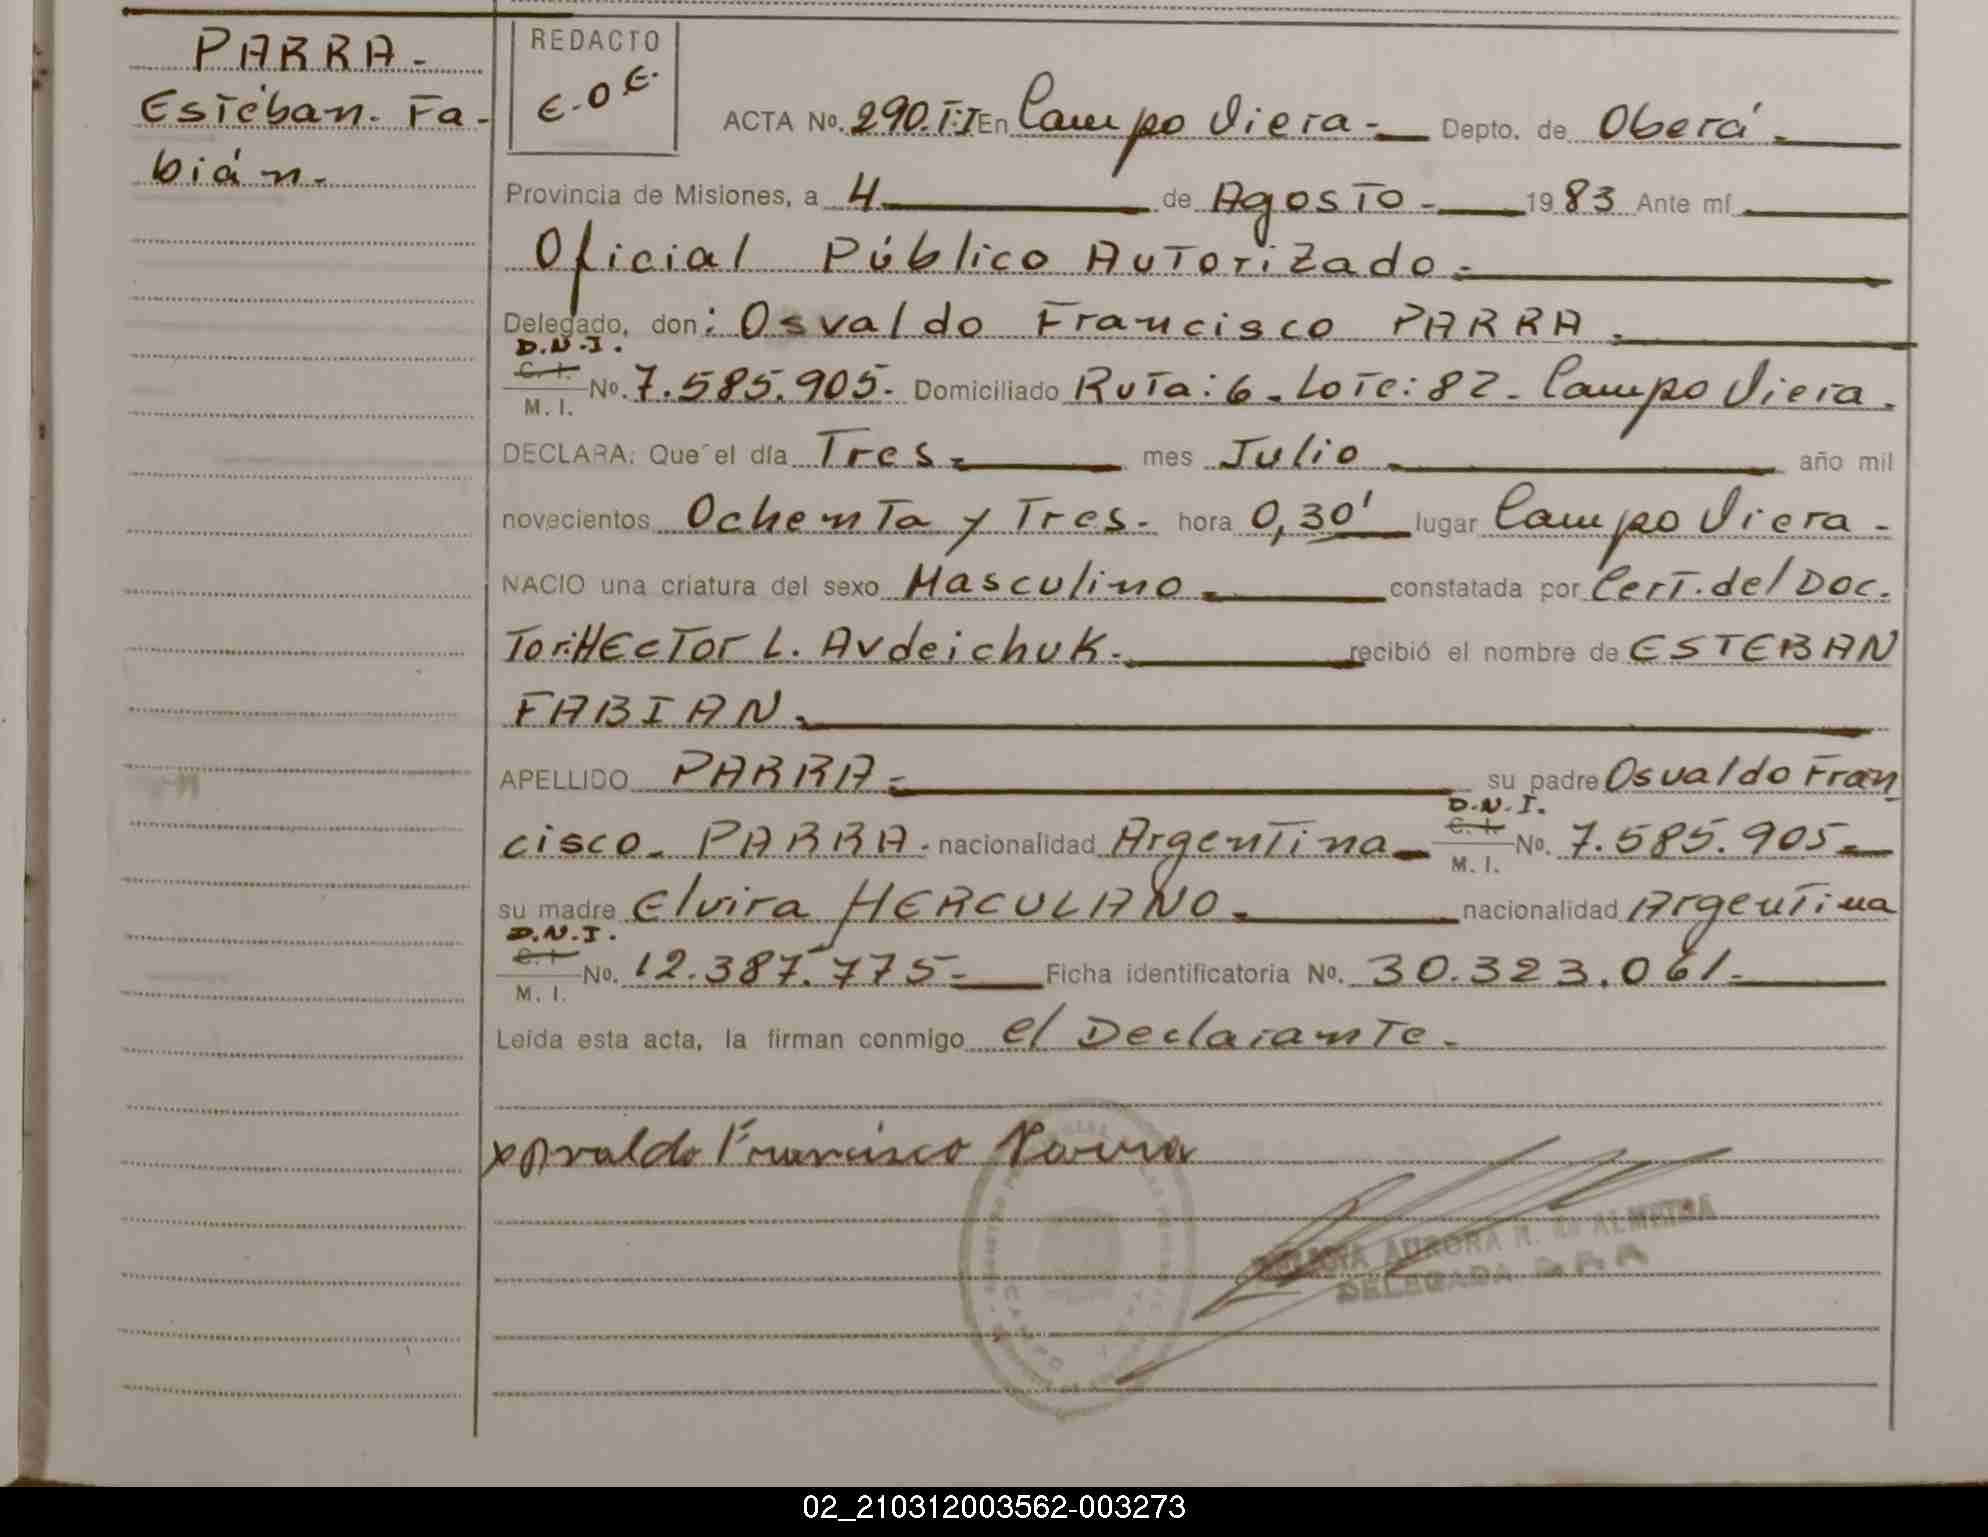 PARRA-
Estéban. Fa-
bián.
REDACTO
E.O.E.
ACTA No. 290.T:I En Campo Viera- Depto. de Oberá-
Provincia de Misiones, a 4 de Agosto- 1983 Ante mí
Oficial Público Autorizado-
Delegado, don: Osvaldo Francisco PARRA.
D.N.I.
C. I.
M. I. No. 7.585.905- Domiciliado Ruta: 6. Lote: 82- Campo Viera.
DECLARA: Que el día Tres- mes Julio año mil
novecientos Ochenta y Tres- hora 0,30' lugar Campo Viera-
NACIO una criatura del sexo Masculino constatada por Cert. del Doc.
Tor: HEcTor L. Avdeichuk. recibió el nombre de ESTEBAN
FABIAN.
APELLIDO PARRA- su padre Osvaldo Fran
D.N.I.
cisco. PARRA. nacionalidad Argentina C. I. M. I. No. 7.585.905-
su madre Elvira HERCULANO. nacionalidad Argentina
D.N.I.
C. I.
M. I. No. 12.387.775- Ficha identificatoria No. 30.323.061-
Leída esta acta, la firman conmigo el Declarante-
x Osvaldo Francisco Parra
AURORA N. de ALMEIDA
DELEGADA
02_210312003562-003273